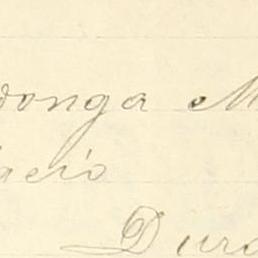 onga M
acio
Dura